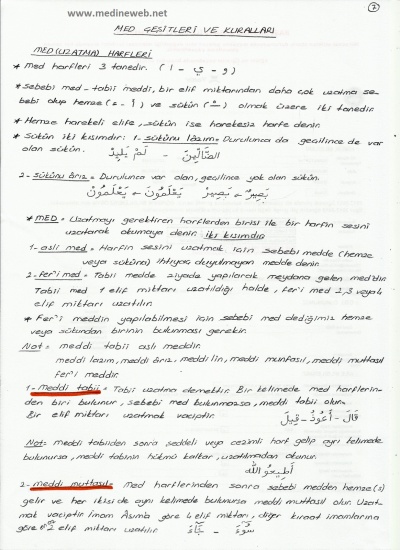 www.medineweb.net
2
MED ÇEŞİTLERİ VE KURALLARI
MED (UZATMA) HARFLERİ
* Med harfleri 3 tanedir. ( و - ي - ا )
* Sebebi med - tabii meddi, bir elif miktarından daha çok uzatma se-
bebi olup hemze ( ء - أ ) ve sükûn ( ْ ) olmak üzere iki tanedir.
* Hemze harekeli elife, sükûn ise harekesiz harfe denir.
* Sükûn iki kısımdır: 1- sükûnu lâzım = Durulunca da geçilince de var
olan sükûn. الضَّالِّينَ - لَمْ يَلِدْ
2- sükûnu ârız = Durulunca var olan, geçilince yok olan sükûn.
بَصِيرٌ - بَصِيرْ يَعْلَمُونَ - يَعْلَمُونْ
* MED = Uzatmayı gerektiren harflerden birisi ile bir harfin sesini
uzatarak okumaya denir. iki kısımdır
1- asli med = Harfin sesini uzatmak için sebebi medde (hemze
veya sükûna) ihtiyaç duyulmayan medde denir.
2- fer'i med = Tabii medde ziyade yapılarak meydana gelen med'dir.
Tabii med 1 elif miktarı uzatıldığı halde, fer'i med 2,3 veya 4
elif miktarı uzatılır.
* Fer'i meddin yapılabilmesi için sebebi med dediğimiz hemze
veya sükûndan birinin bulunması gerekir.
Not = meddi tabii asli meddir.
meddi lazım, meddi ârız, meddi lin, meddi munfasıl, meddi muttasıl
fer'i meddir.
1- Meddi tabii = Tabii uzatma demektir. Bir kelimede med harflerin-
den biri bulunur, sebebi med bulunmazsa, meddi tabii olur.
Bir elif miktarı uzatmak vaciptir. قَالَ - أَعُوذُ - قِيلَ
Not = meddi tabiiden sonra şeddeli veya cezimli harf gelip ayrı kelimede
bulunursa, meddi tabinin hükmü kalkar, uzatılmadan okunur.
أَطِيعُوا اللّٰهَ
2- meddi muttasıl = Med harflerinden sonra sebebi medden hemze (ء)
gelir ve her ikisi de aynı kelimede bulunursa meddi muttasıl olur. Uzat-
mak vaciptir. İmam Asıma göre 4 elif miktarı, diğer kıraat imamlarına
göre 2 elif miktarı uzatılır. سُوءَ - جَاءَ